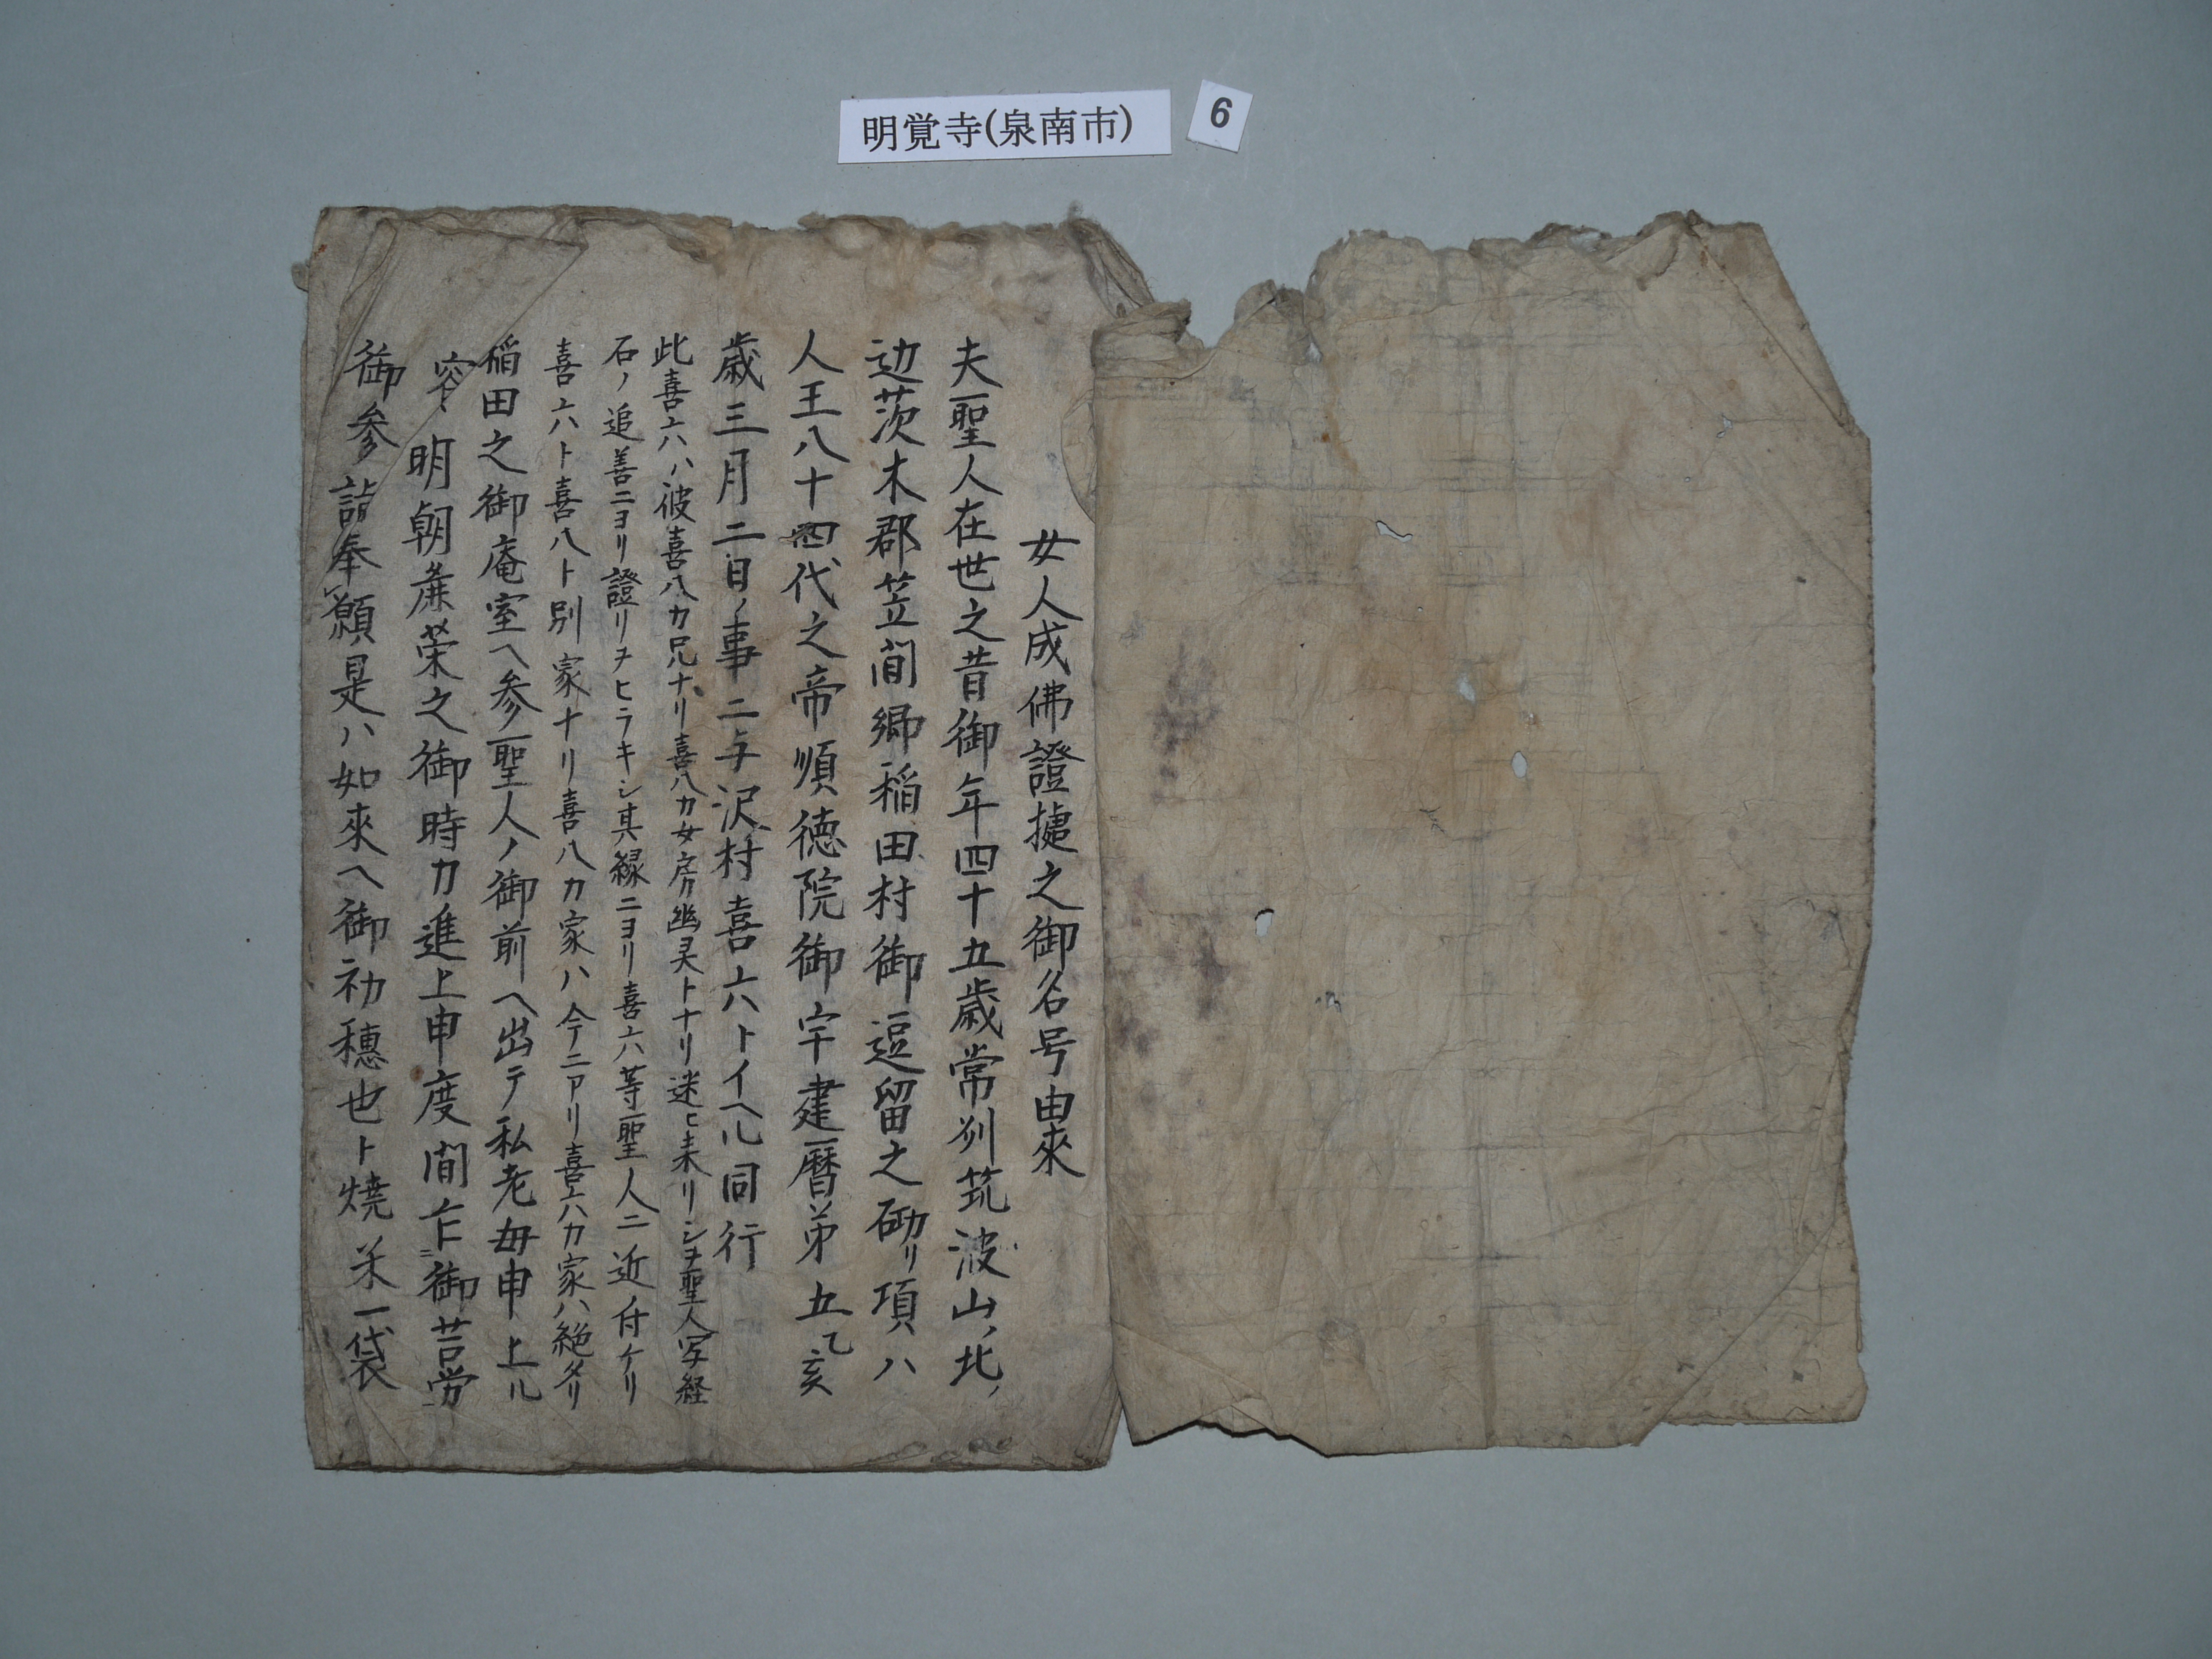 明覚寺(泉南市)
6
女人成佛證㨗之御名号由來
夫聖人在世之昔御年四十五歳常州筑波山ノ北ノ
辺茨木郡笠間郷稲田村御逗留之砌リ項ハ
人王八十四代之帝順徳院御宇建暦第五乙亥
歳三月二日ノ事ニ与沢村喜六トイヘル同行
此喜六ハ彼喜八カ兄ナリ喜八カ女房幽灵トナリ迷ヒ来リシヲ聖人写経
石ノ追善ニヨリ證リヲヒラキシ其縁ニヨリ喜六等聖人ニ近ノ付ケリ
喜六ト喜八ト別家ナリ喜八カ家ハ今ニアリ喜六カ家ハ絶タリ
稲田之御庵室ヘ参聖人ノ御前ヘ出テ私老毎申上ル
容ハ明朝麁菜之御時カ進上申度間乍御苦労
御参詣奉願是ハ如來ヘ御初穂也ト燒米一袋